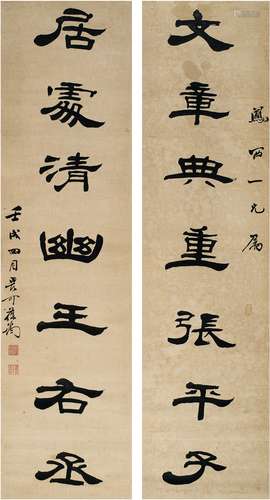 鳳一兄屬
文章典重張平子
居處清幽王右丞
壬戌四月